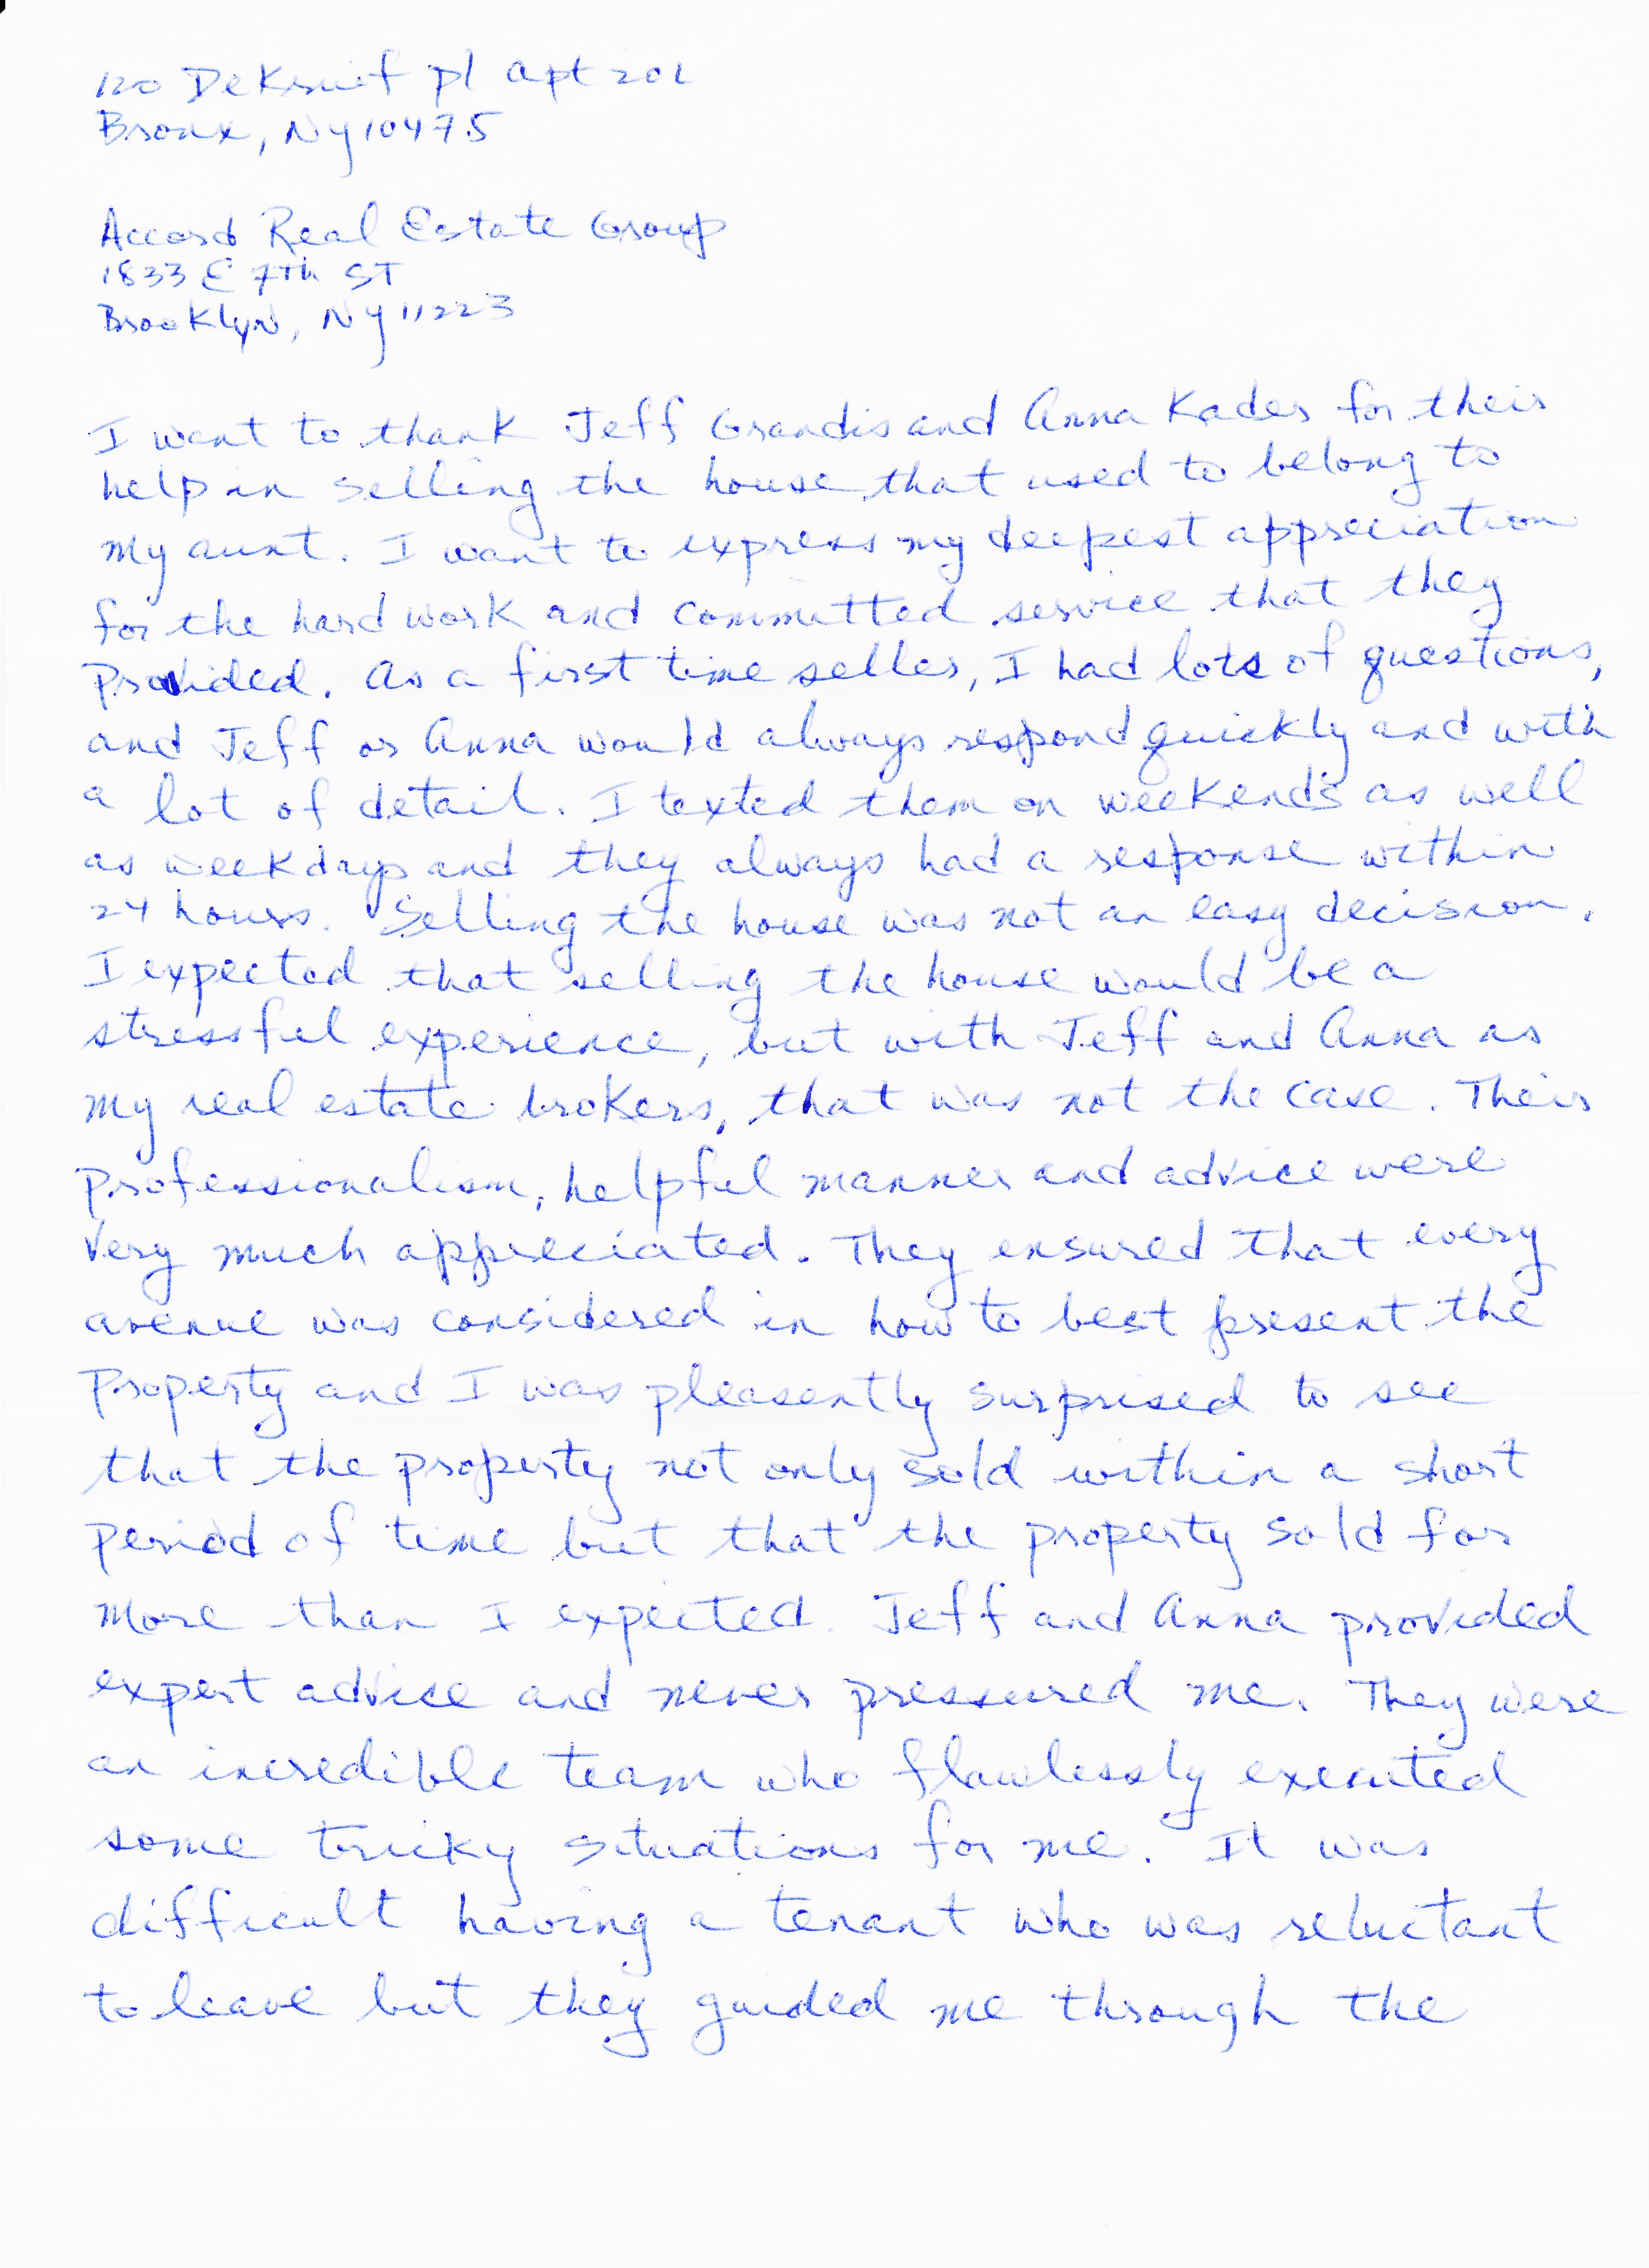 120 DeKruif pl apt 202
Bronx, Ny 10475
Accord Real Estate Group
1833 E 7th ST
Brooklyn, Ny 11223
I want to thank Jeff Grandis and Anna Kader for their
help in selling the house that used to belong to
my aunt. I want to express my deepest appreciation
for the hard work and committed service that they
Provided. As a first time seller, I had lots of questions,
and Jeff or Anna would always respond quickly and with
a lot of detail. I texted them on weekends as well
as weekdays and they always had a response within
24 hours. Selling the house was not an easy decision.
I expected that selling the house would be a
stressful experience, but with Jeff and Anna as
my real estate brokers, that was not the case. Their
professionalism, helpful manner and advice were
very much appreciated. They ensured that every
avenue was considered in how to best present the
Property and I was pleasently surprised to see
that the property not only sold within a short
period of time but that the property sold for
more than I expected. Jeff and Anna provided
expert advice and never pressured me. They were
an incredible team who flawlessly executed
some tricky situations for me. It was
difficult having a tenant who was reluctant
to leave but they guided me through the